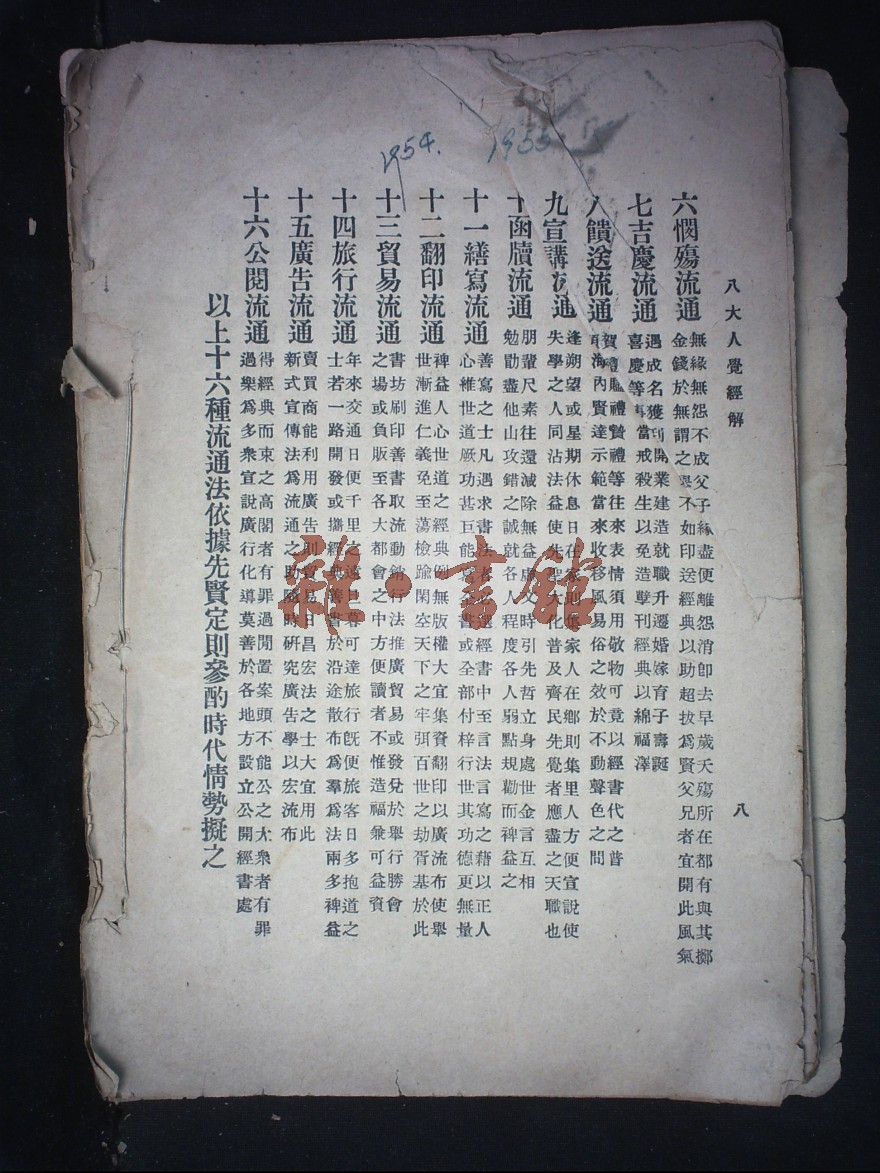 1954.
1955
八大人覺經解
八
六憫殤流通
無緣無怨不成父子緣盡便離怨消即去早歲夭殤所在都有與其擲
金錢於無謂之舉不如印送經典以助超拔爲賢父兄者宜開此風氣
七吉慶流通
遇成名獲利開業建造就職升遷婚嫁育子壽誕
喜慶等事當戒殺生以免造孽刊經典以綿福澤
八饋送流通
賀禮贐禮贄禮等往來表情須用敬物可竟以經書代之普
海內賢達示範當來收移風易俗之效於不動聲色之間
九宣講流通
逢朔望或星期休息日在家則集家人在鄉則集里人方便宣說使
失學之人同沾法益使先聖大化普及齊民先覺者應盡之天職也
十函牘流通
朋輩尺素往還減除無益虛文時引先哲立身處世金言互相
勉勖盡他山攻錯之誠就各人程度各人弱點規勸而裨益之
十一繕寫流通
善寫之士凡遇求書法者必選經書中至言法言寫之藉以正人
心維世道厥功甚巨能書全書或全部付梓行世其功德更無量
十二翻印流通
裨益人心世道之經典例無版權大宜集資翻印以廣流布使舉
世漸進仁義免至蕩檢踰閑空天下之牢弭百世之劫胥基於此
十三貿易流通
書坊刷印善書取流動銷行法推廣貿易或發兌於舉行勝會
之場或負版至各大都會之中方便讀者不惟造福兼可益資
十四旅行流通
年來交通日便千里之遠旦暮可達旅行旣便旅客日多抱道之
士若一路開發或攜經典善書於沿途散布爲羣爲法兩多裨益
十五廣告流通
賣買商能利用廣告則貿易日昌宏法之士大宜用此
新式宣傳法爲流通之助隨時研究廣告學以宏流布
十六公閱流通
得經典而束之高閣者有罪過閒置案頭不能公之大衆者有罪
過樂爲多衆宣說廣行化導莫善於各地方設立公開經書處
以上十六種流通法依據先賢定則參酌時代情勢擬之
雜·書館